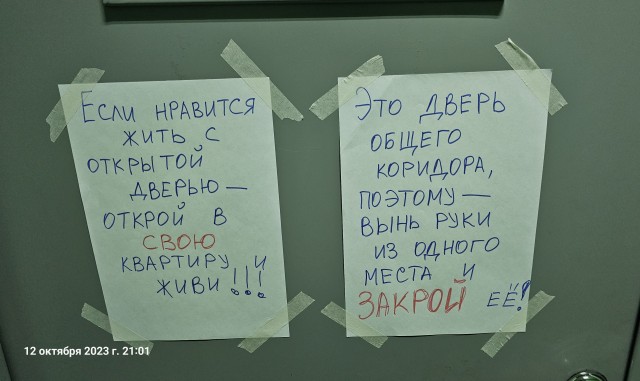 Если нравится
жить с
открытой
дверью —
открой в
свою
квартиру и
живи!!!
Это дверь
общего
коридора,
поэтому —
вынь руки
из одного
места и
закрой её!
12 октября 2023 г. 21:01